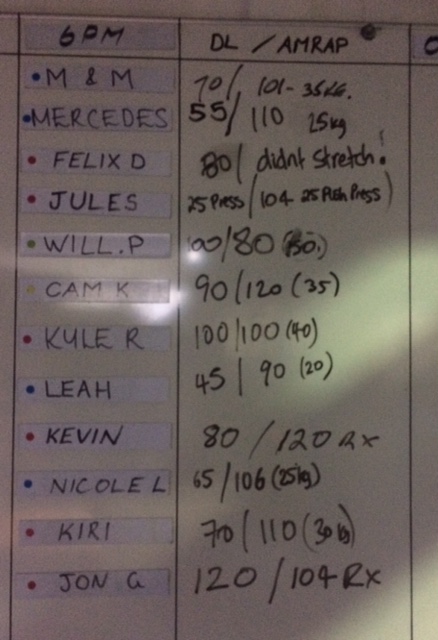 6PM DL / AMRAP
M & M 70/ 101- 35KG.
MERCEDES 55/ 110 25kg
FELIX D 80/ didnt stretch!
JULES 25 Press / 104 25 Push Press)
WILL.P 100/80 (50.)
CAM K 90/120 (35)
KYLE R 100/100 (40)
LEAH 45 / 90 (20)
KEVIN 80 / 120 Rx
NICOLE L 65/106 (25kg)
KIRI 70/110 (30kg)
JON G 120 / 104 Rx